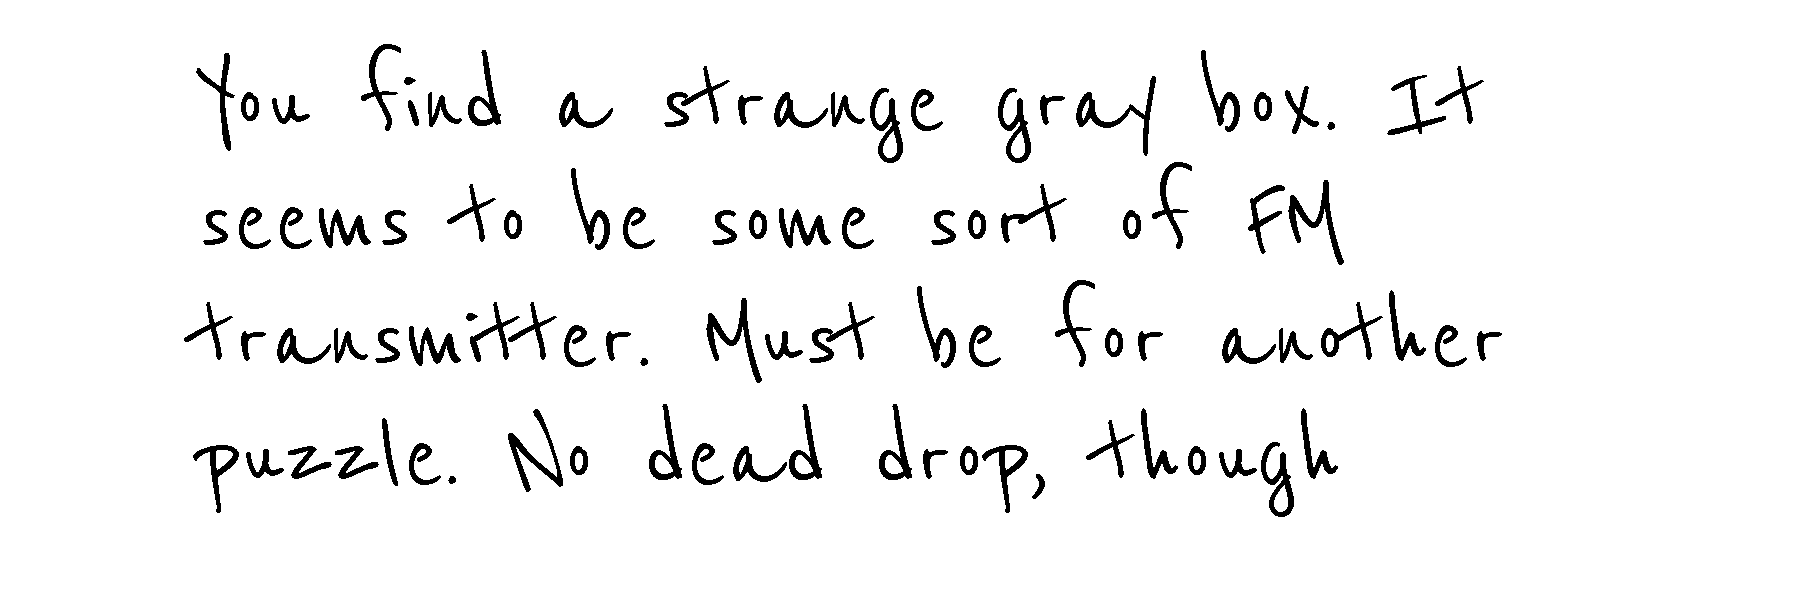 You find a strange gray box. It
seems to be some sort of FM
transmitter. Must be for another
puzzle. No dead drop, though